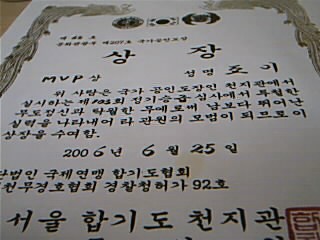 제 88 호
문화관광부 제207호 국가공인도장
상 장
MVP상
성명 표 이
위 사람은 국가 공인도장인 천지관에서
실시하는 제103회 정기승급.심사에서 투철한
무도정신과 탁월한 무예로써 남보다 뛰어난
실력을 나타내어 타 관원의 모범이 되므로 이
상장을 수여함.
2006년 6월 25일
단법인 국제연맹 합기도협회
천무경호협회 경찰청허가 92호
서울 합기도 천지관